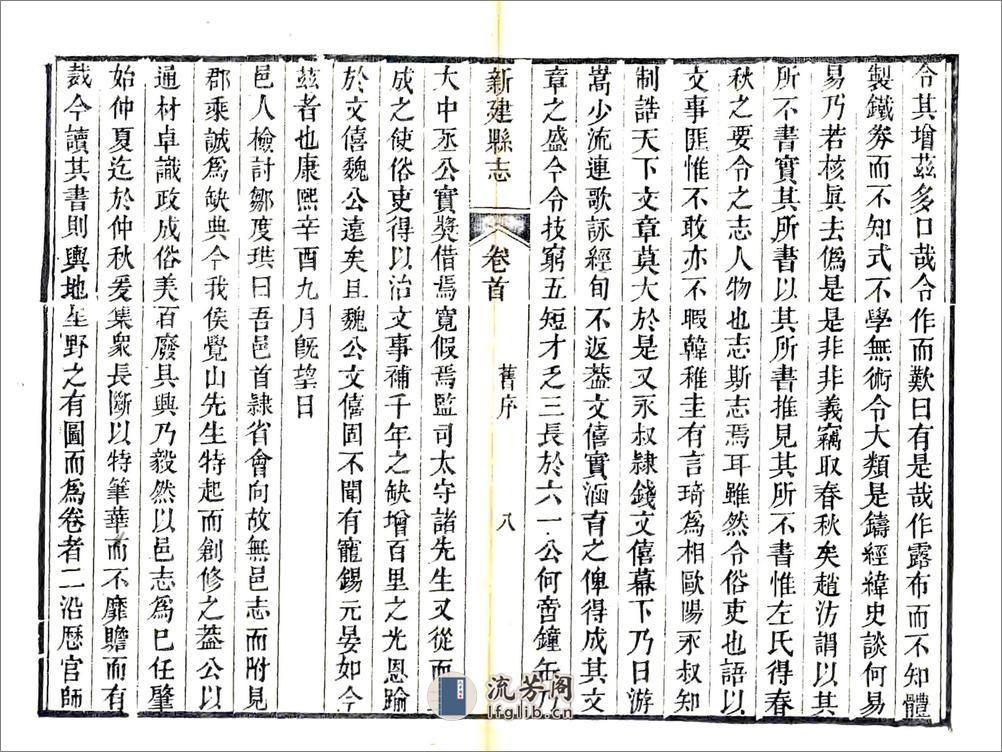 令其增茲多口哉令作而歎曰有是哉作露布而不知體
製鐵券而不知式不學無術令大類是鑄經緯史談何易
易乃若核眞去僞是是非非義竊取春秋矣趙汸謂以其
所不書實其所書以其所書推見其所不書惟左氏得春
秋之要令之志人物也志斯志焉耳雖然令俗吏也語以
文事匪惟不敢亦不暇韓稚圭有言琦爲相歐陽永叔知
制誥天下文章莫大於是又永叔隷錢文僖幕下乃日游
嵩少流連歌詠經旬不返葢文僖實涵育之俾得成其文
章之盛今令技窮五短才乏三長於六一公何啻鐘缶乃
新建縣志
卷首
舊序
八
大中丞公實奬借焉寬假焉監司太守諸先生又從而
成之使俗吏得以治文事補千年之缺增百里之光恩踰
於文僖魏公遠矣且魏公文僖固不聞有寵錫元晏如今
茲者也康熙辛酉九月旣望日
邑人檢討鄒度珙曰吾邑首隷省會向故無邑志而附見
郡乘誠爲缺典今我侯覺山先生特起而創修之葢公以
通材卓識政成俗美百廢具興乃毅然以邑志爲已任肇
始仲夏迄於仲秋爰集衆長斷以特筆華而不靡贍而有
裁今讀其書則輿地星野之有圖而爲卷者二沿歷官師
流芳阁
lfglib.cn